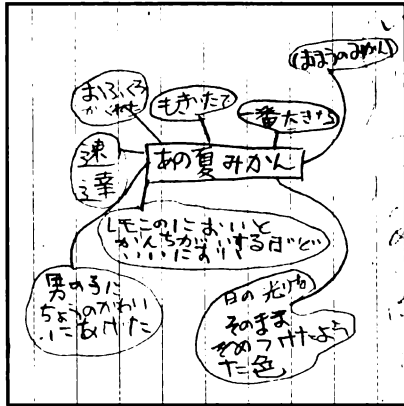 (まほうのみかん)
おふくろ
がくれた
もぎたて
一番大きな
速
達
あの夏みかん
レモンのにおいと
かんちがいするほど
いいにおい
男の子に
ちょうのかわり
にあげた
日の光を
そのまま
そめつけたよう
な色